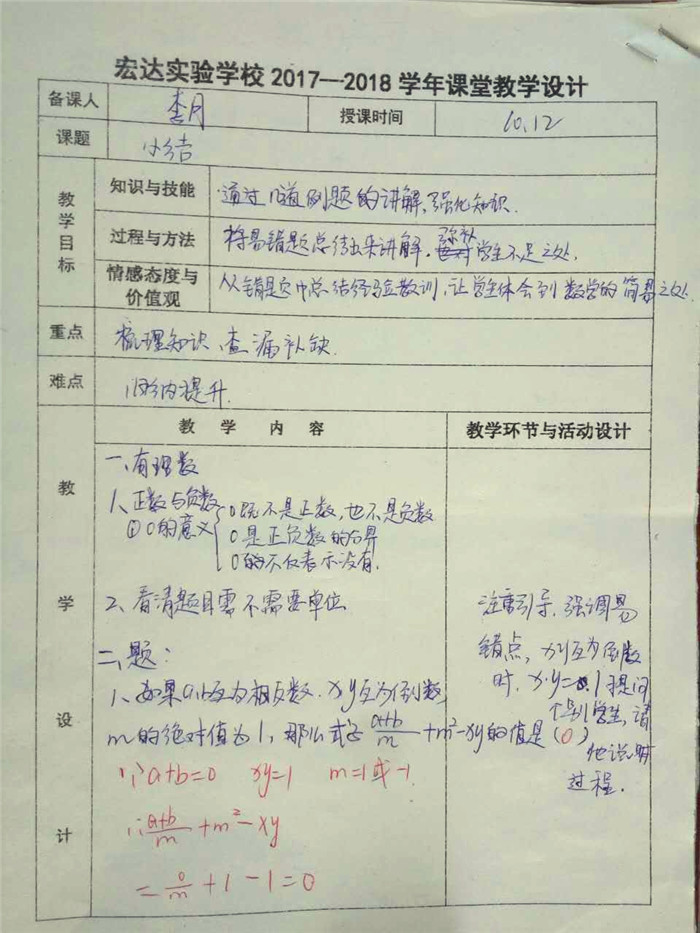 宏达实验学校 2017—2018 学年课堂教学设计
备课人 李月 授课时间 10.12
课题 小结
教学目标
知识与技能 通过几道例题的讲解,强化知识.
过程与方法 将易错题总结出来讲解.弥补学生不足之处.
情感态度与价值观 从错题中总结经验教训,让学生体会到数学的简易之处.
重点 梳理知识、查漏补缺.
难点 归纳提升.
教学设计
教 学 内 容
教学环节与活动设计
一、有理数
1、正数与负数
①0的意义
0既不是正数,也不是负数
0是正负数的分界
0的不仅表示没有.
2、看清题目需不需要单位
二、题:
1、如果a,b互为相反数.x y互为倒数,
m的绝对值为1,那么式子 a+b/m +m²-xy的值是(0)
∵a+b=0 xy=1 m=1或-1
∴a+b/m +m²-xy
=0/m +1-1=0
注重引导,强调易
错点,x y互为倒数
时,x·y=1提问
个别学生,请
他说明
过程.